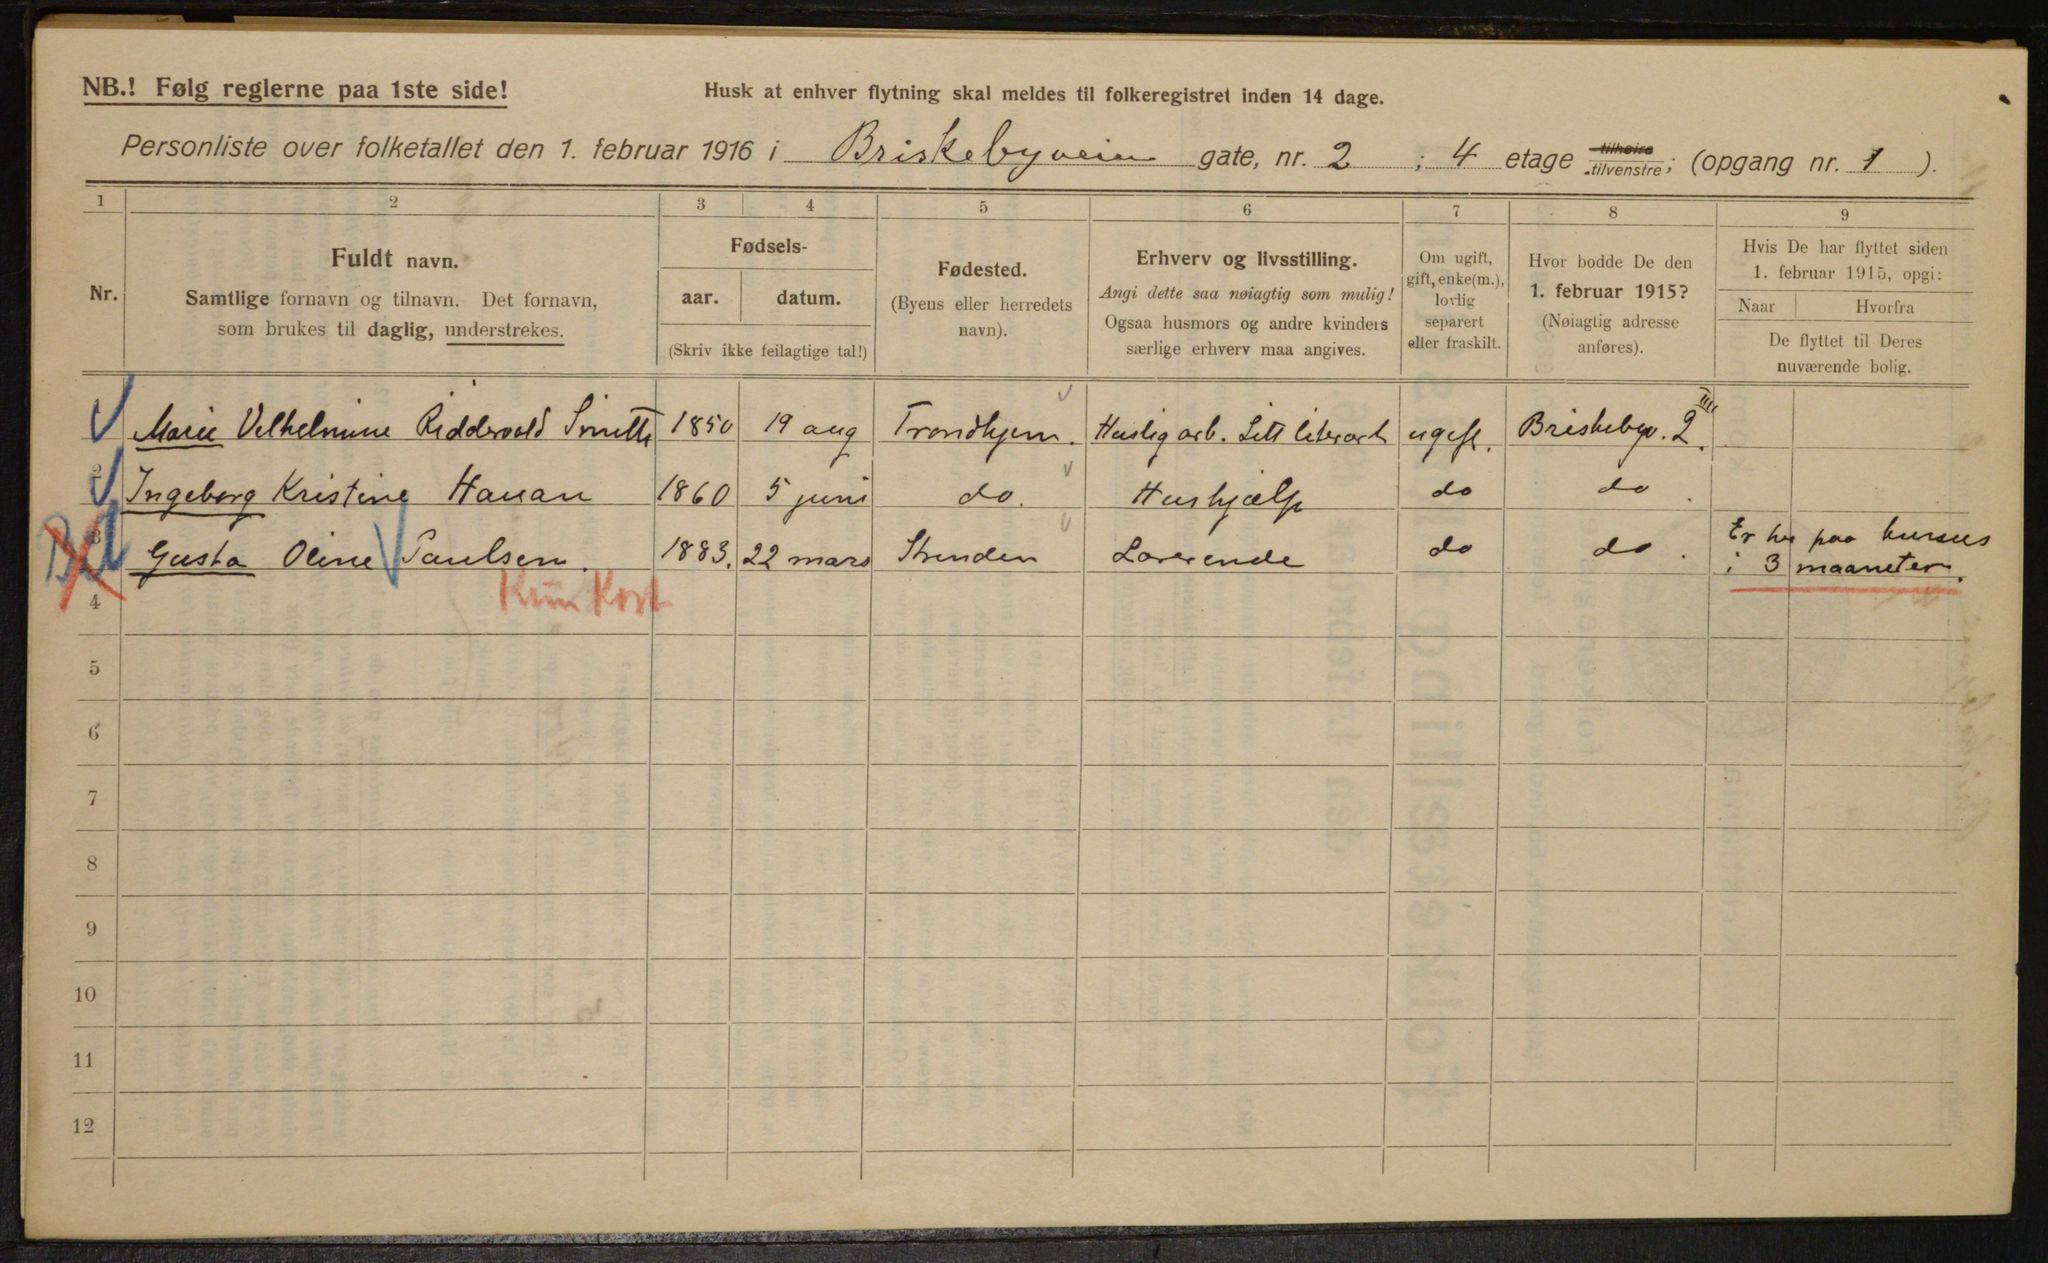 NB.! Følg reglerne paa 1ste side!
Husk at enhver flytning skal meldes til folkeregistret inden 14 dage.
Personliste over folketallet den 1. februar 1916 i Briskebyveien gate, nr. 2 ; 4 etage tilhøire tilvenstre; (opgang nr. 1 ).
1 2 3 4 5 6 7 8 9
Nr.
Fuldt navn.
Samtlige fornavn og tilnavn. Det fornavn,
som brukes til daglig, understrekes.
Fødsels-
aar. datum.
(Skriv ikke feilagtige tal!)
Fødested.
(Byens eller herredets
navn).
Erhverv og livsstilling.
Angi dette saa nøiagtig som mulig!
Ogsaa husmors og andre kvinders
særlige erhverv maa angives.
Om ugift,
gift, enke(m.),
lovlig
separert
eller fraskilt.
Hvor bodde De den
1. februar 1915?
(Nøiagtig adresse
anføres).
Hvis De har flyttet siden
1. februar 1915, opgi:
Naar Hvorfra
De flyttet til Deres
nuværende bolig.
1 Marie Vilhelmine Riddervold 1850 19 aug Trondhjem. Huslig arb. Litt literært ugift. Briskebyv. 2 IIII
2 Ingeborg Kristine Hauan 1860 5 juni do. Hushjælp do do.
3 Gusta Oline Paulsen. 1883. 22 mars Strinden Lærerinde do do. Er her paa kursus
i 3 maaneter.
Kun Kort
4
5
6
7
8
9
10
11
12